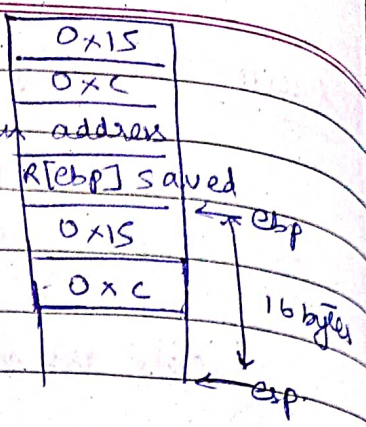 0x15
0xC
address
R[ebp] saved
ebp
0x15
0xC
16 bytes
esp